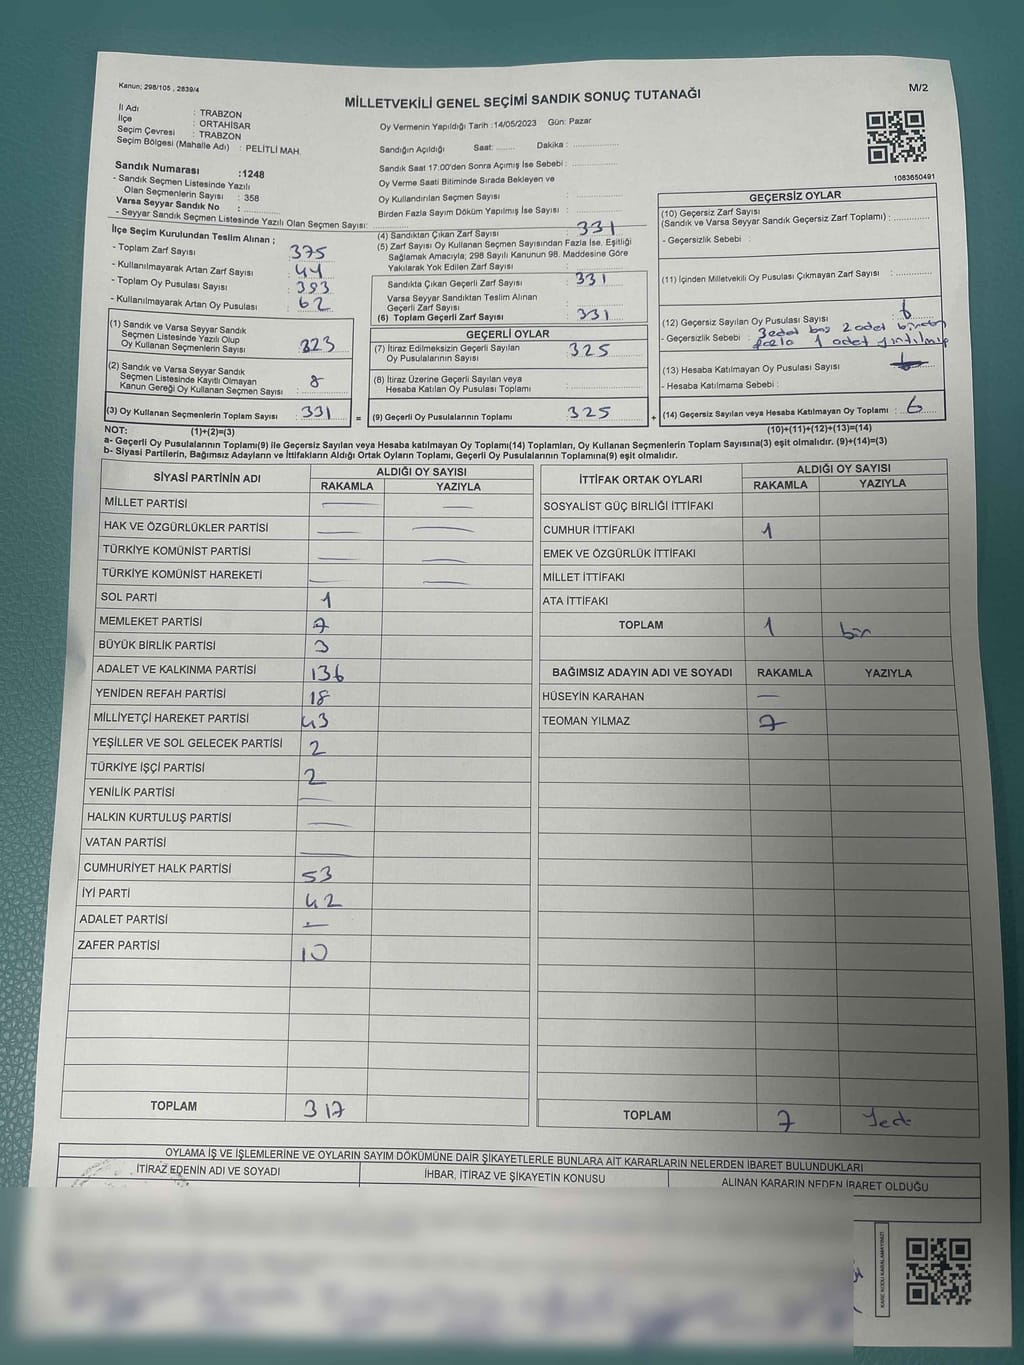 Kanun; 298/105 , 2839/4
MİLLETVEKİLİ GENEL SEÇİMİ SANDIK SONUÇ TUTANAĞI
M/2
İl Adı : TRABZON
İlçe : ORTAHİSAR
Seçim Çevresi : TRABZON
Seçim Bölgesi (Mahalle Adı) : PELİTLİ MAH.
Sandık Numarası :1248
- Sandık Seçmen Listesinde Yazılı
Olan Seçmenlerin Sayısı : 358
Varsa Seyyar Sandık No :
- Seyyar Sandık Seçmen Listesinde Yazılı Olan Seçmen Sayısı:
Oy Vermenin Yapıldığı Tarih :14/05/2023 Gün: Pazar
Sandığın Açıldığı Saat: Dakika :
Sandık Saat 17:00'den Sonra Açımış İse Sebebi :
Oy Verme Saati Bitiminde Sırada Bekleyen ve
Oy Kullandırılan Seçmen Sayısı :
Birden Fazla Sayım Döküm Yapılmış İse Sayısı :
1083650491
İlçe Seçim Kurulundan Teslim Alınan ;
- Toplam Zarf Sayısı : 375
- Kullanılmayarak Artan Zarf Sayısı : 44
- Toplam Oy Pusulası Sayısı : 393
- Kullanılmayarak Artan Oy Pusulası : 62
(1) Sandık ve Varsa Seyyar Sandık
Seçmen Listesinde Yazılı Olup
Oy Kullanan Seçmenlerin Sayısı : 323
(2) Sandık ve Varsa Seyyar Sandık
Seçmen Listesinde Kayıtlı Olmayan
Kanun Gereği Oy Kullanan Seçmen Sayısı : 8
(3) Oy Kullanan Seçmenlerin Toplam Sayısı : 331 =
(4) Sandıktan Çıkan Zarf Sayısı : 331
(5) Zarf Sayısı Oy Kullanan Seçmen Sayısından Fazla İse, Eşitliği
Sağlamak Amacıyla; 298 Sayılı Kanunun 98. Maddesine Göre
Yakılarak Yok Edilen Zarf Sayısı :
Sandıkta Çıkan Geçerli Zarf Sayısı : 331
Varsa Seyyar Sandıktan Teslim Alınan
Geçerli Zarf Sayısı :
(6) Toplam Geçerli Zarf Sayısı : 331
GEÇERLİ OYLAR
(7) İtiraz Edilmeksizin Geçerli Sayılan
Oy Pusulalarının Sayısı : 325
(8) İtiraz Üzerine Geçerli Sayılan veya
Hesaba Katılan Oy Pusulası Toplamı :
(9) Geçerli Oy Pusulalarının Toplamı : 325 +
GEÇERSİZ OYLAR
(10) Geçersiz Zarf Sayısı
(Sandık ve Varsa Seyyar Sandık Geçersiz Zarf Toplamı) :
- Geçersizlik Sebebi :
(11) İçinden Milletvekili Oy Pusulası Çıkmayan Zarf Sayısı :
(12) Geçersiz Sayılan Oy Pusulası Sayısı : 6
- Geçersizlik Sebebi : 3 adet boş 2 adet birden
fazla 1 adet yırtılmış
(13) Hesaba Katılmayan Oy Pusulası Sayısı :
- Hesaba Katılmama Sebebi :
(14) Geçersiz Sayılan veya Hesaba Katılmayan Oy Toplamı : 6
NOT: (1)+(2)=(3) (10)+(11)+(12)+(13)=(14)
a- Geçerli Oy Pusulalarının Toplamı(9) ile Geçersiz Sayılan veya Hesaba katılmayan Oy Toplamı(14) Toplamları, Oy Kullanan Seçmenlerin Toplam Sayısına(3) eşit olmalıdır. (9)+(14)=(3)
b- Siyasi Partilerin, Bağımsız Adayların ve İttifakların Aldığı Ortak Oyların Toplamı, Geçerli Oy Pusulalarının Toplamına(9) eşit olmalıdır.
SİYASİ PARTİNİN ADI ALDIĞI OY SAYISI
RAKAMLA YAZIYLA
MİLLET PARTİSİ — —
HAK VE ÖZGÜRLÜKLER PARTİSİ — —
TÜRKİYE KOMÜNİST PARTİSİ — —
TÜRKİYE KOMÜNİST HAREKETİ — —
SOL PARTİ 1
MEMLEKET PARTİSİ 7
BÜYÜK BİRLİK PARTİSİ 3
ADALET VE KALKINMA PARTİSİ 136
YENİDEN REFAH PARTİSİ 18
MİLLİYETÇİ HAREKET PARTİSİ 43
YEŞİLLER VE SOL GELECEK PARTİSİ 2
TÜRKİYE İŞÇİ PARTİSİ 2
YENİLİK PARTİSİ —
HALKIN KURTULUŞ PARTİSİ —
VATAN PARTİSİ —
CUMHURİYET HALK PARTİSİ 53
İYİ PARTİ 42
ADALET PARTİSİ —
ZAFER PARTİSİ 10
TOPLAM 317
İTTİFAK ORTAK OYLARI ALDIĞI OY SAYISI
RAKAMLA YAZIYLA
SOSYALİST GÜÇ BİRLİĞİ İTTİFAKI
CUMHUR İTTİFAKI 1
EMEK VE ÖZGÜRLÜK İTTİFAKI
MİLLET İTTİFAKI
ATA İTTİFAKI
TOPLAM 1 bir
BAĞIMSIZ ADAYIN ADI VE SOYADI RAKAMLA YAZIYLA
HÜSEYİN KARAHAN —
TEOMAN YILMAZ 7
TOPLAM 7 Yedi
OYLAMA İŞ VE İŞLEMLERİNE VE OYLARIN SAYIM DÖKÜMÜNE DAİR ŞİKAYETLERLE BUNLARA AİT KARARLARIN NELERDEN İBARET BULUNDUKLARI
İTİRAZ EDENİN ADI VE SOYADI İHBAR, İTİRAZ VE ŞİKAYETİN KONUSU ALINAN KARARIN NEDEN İBARET OLDUĞU
KARE KODU KARALAMAYINIZ!